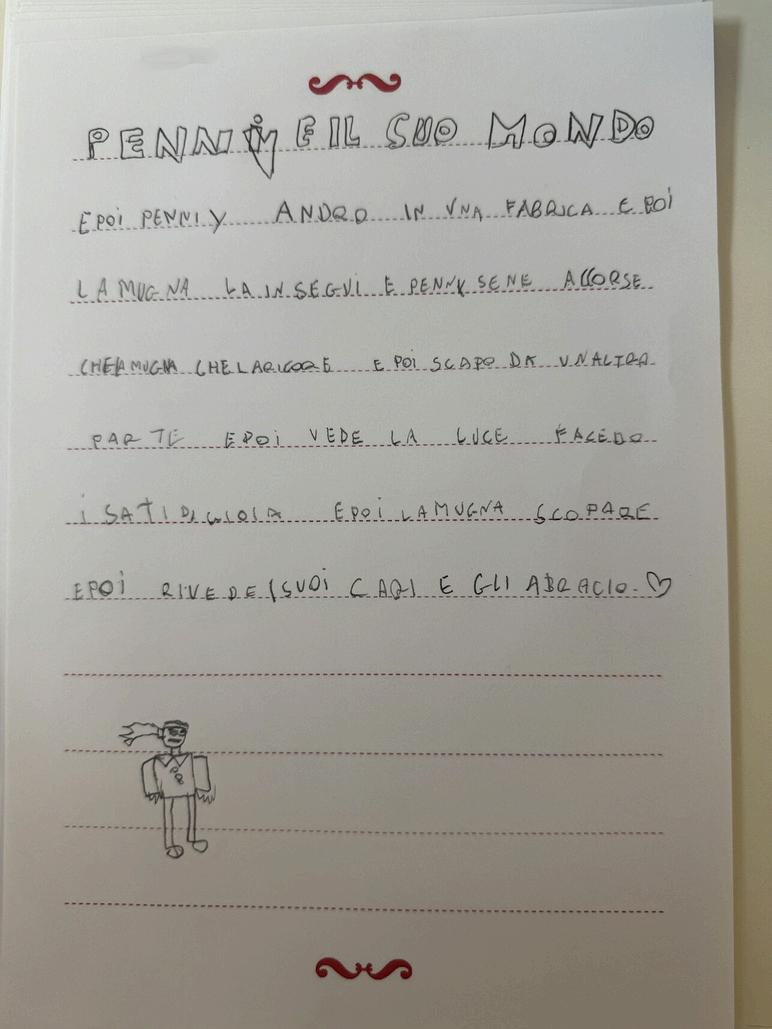 PENNY E IL SUO MONDO
E POI PENNIY ANDRO IN UNA FABRICA E POI
LA MUGNA LA INSEGUI E PENNY SENE ACCORSE
CHE LA MUGNA CHE LARICORE E POI SCAPO DA UNALTRA
PARTE E POI VEDE LA LUCE FACEDO
i SATI DI GIOIA E POI LA MUGNA SCOPARE
E POI RIVEDE I SUOI CARI E GLI ABRACIO. ♡